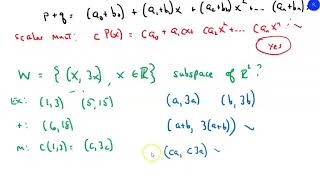 p + q = (a₀+b₀) + (a₁+b₁)x + (a₂+b₂)x² ... (aₙ+bₙ)
scalar mult: c p(x) = ca₀ + a₁cx + ca₂x² ... caₙxⁿ
Yes
W = { (x, 3x), x ∈ ℝ } subspace of ℝ²?
Ex: (1,3) (5,15) (a, 3a) (b, 3b)
+: (6,18) (a+b, 3(a+b)) ✓
m: c(1,3) = (c, 3c) (ca, c3a) ✓